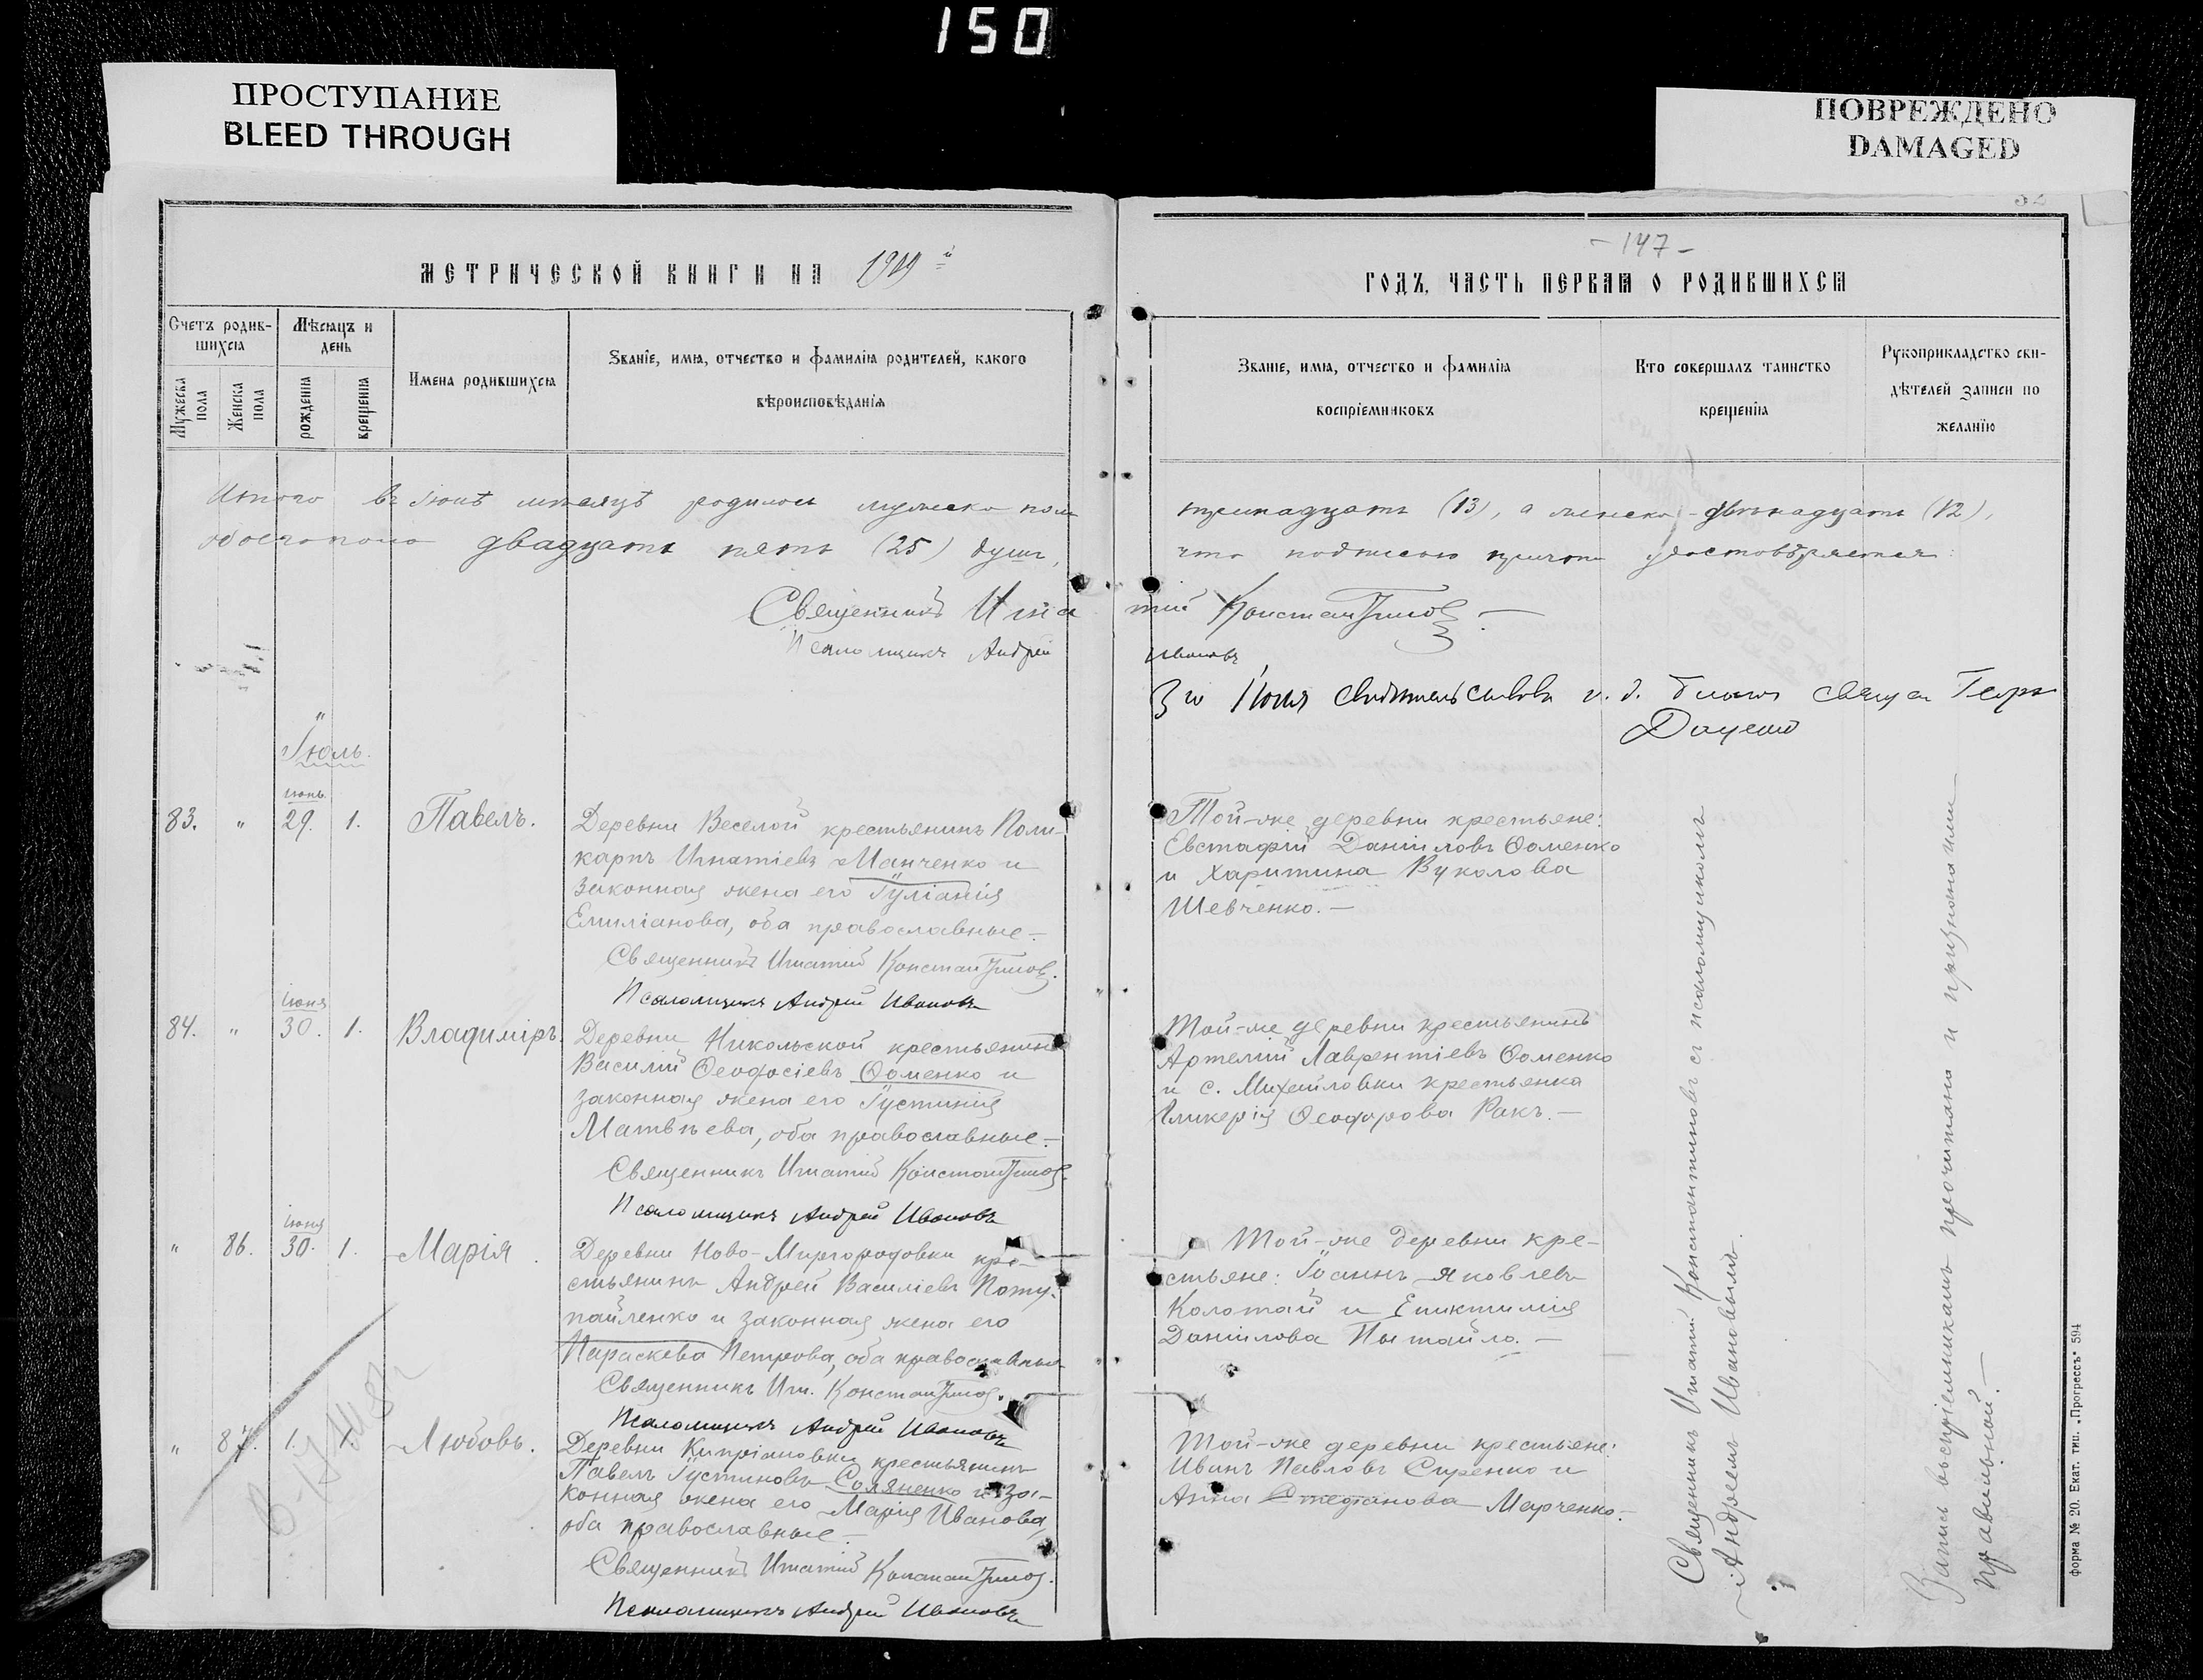 150
ПРОСТУПАНИЕ
BLEED THROUGH
ПОВРЕЖДЕНО
DAMAGED
МЕТРИЧЕСКОЙ КНИГИ НА
Счетъ родив-
шихся
Мѣсяцъ и
день
Имена родившихся
Званіе, имя, отчество и фамилія родителей, какого
вѣроисповѣданія
Мужеска
пола
Женска
пола
рожденія
крещенія
Итого въ Іюнѣ мѣсяцѣ родилось мужеска пола
обоего пола двадцать пять (25) душъ,
Священникъ Игна
Псаломщикъ Андрей
Іюль.
іюнь
83. " 29. 1. Павелъ.
Деревни Веселой крестьянинъ Поли-
карпъ Игнатіевъ Манченко и
законная жена его Іуліанія
Емиліанова, оба православные.-
Священникъ Игнатій Константиновъ.
Псаломщикъ Андрей Ивановъ
іюня
84. " 30. 1. Владиміръ.
Деревни Никольской крестьянинъ
Василій Ѳеодосіевъ Ѳоменко и
законная жена его Іустинія
Матвѣева, оба православные.-
Священникъ Игнатій Константиновъ.
Псаломщикъ Андрей Ивановъ
іюня
" 86. 30. 1. Марія.
Деревни Ново-Миргородовки кре-
стьянинъ Андрей Василіевъ Поту-
пайленко и законная жена его
Параскева Петрова, оба православные
Священникъ Игн. Константиновъ.
Псаломщикъ Андрей Ивановъ
" 87. 1. 1. Любовь.
Деревни Кипріановки крестьянинъ
Павелъ Іустиновъ Соляненко и за-
конная жена его Марія Иванова,
оба православные.-
Священникъ Игнатій Константиновъ.
Псаломщикъ Андрей Ивановъ
- 147 -
ГОДЪ, ЧАСТЬ ПЕРВАЯ О РОДИВШИХСЯ
Званіе, имя, отчество и фамилія
воспріемниковъ
Кто совершалъ таинство
крещенія
Рукоприкладство сви-
дѣтелей записи по
желанію
тринадцать (13), а женска - двѣнадцать (12),
что подписью причта удостовѣряется:
тій Константиновъ.-
Ивановъ
Іюля
Той-же деревни крестьяне:
Евстафій Даніиловъ Ѳоменко
и Харитина Вуколова
Шевченко.-
Той-же деревни крестьянинъ
Артемій Лаврентіевъ Ѳоменко
и с. Михайловки крестьянка
Гликерія Ѳеодорова Ракъ.-
Той-же деревни кре-
стьяне: Іоаннъ Яковлевъ
Колотай и Епиктимія
Даніилова Пытайло.-
Той-же деревни крестьяне:
Иванъ Павловъ Сиренко и
Анна Стефанова Марченко.-
Священникъ Игнатій Константиновъ съ псаломщикомъ
Андреемъ Ивановымъ.
Запись воспріемникамъ прочитана и признана ими
правильной.-
Форма № 20. Екат. тип. „Прогрессъ" 594